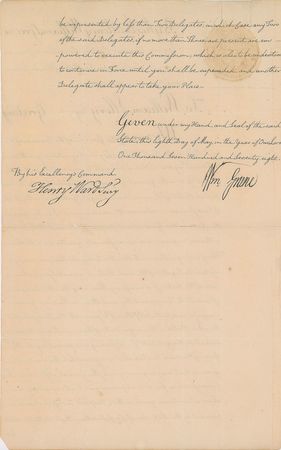 be represented by less than Two Delegates, in which Case any Two
of the said Delegates, if no more than Three are present are em-
powered to execute this Commission, which is also to be understood
to continue in Force until you shall be superseded and another
Delegate shall appear to take your Place.
Given under my Hand and Seal of the said
State, this Eighth Day of May, in the Year of Our Lord
One Thousand Seven Hundred and Seventy eight.
By his Excellency's Command
Henry Ward Secy
Wm Greene